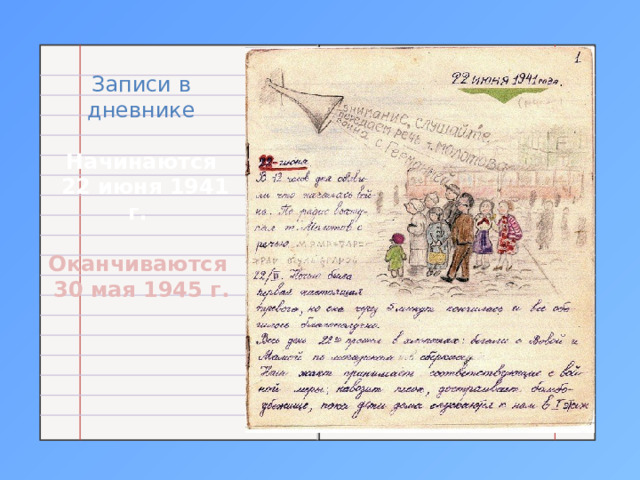 Записи в
дневнике
Начинаются
22 июня 1941
г.
Оканчиваются
30 мая 1945 г.
1
22 июня 1941 года.
Внимание, слушайте,
передаем речь т. Молотова
война с Германией
22-июня.
В 12 часов дня объяви-
ли что началась вой-
на. По радио высту-
пил т. Молотов с
речью.
22/VI. Ночью была
первая настоящая
тревога, но она через 5 минут кончилась и все обо
шлось благополучно.
Весь день 22го прошел в хлопотах: бегали с Вовой и
Мамой по магазинам и в сберкассу.
Наш жакт принимает соответствующие с вой-
ной меры: навозит песок, достраивает бомбо-
убежище, пока дети дома спускаются к нам в I этаж